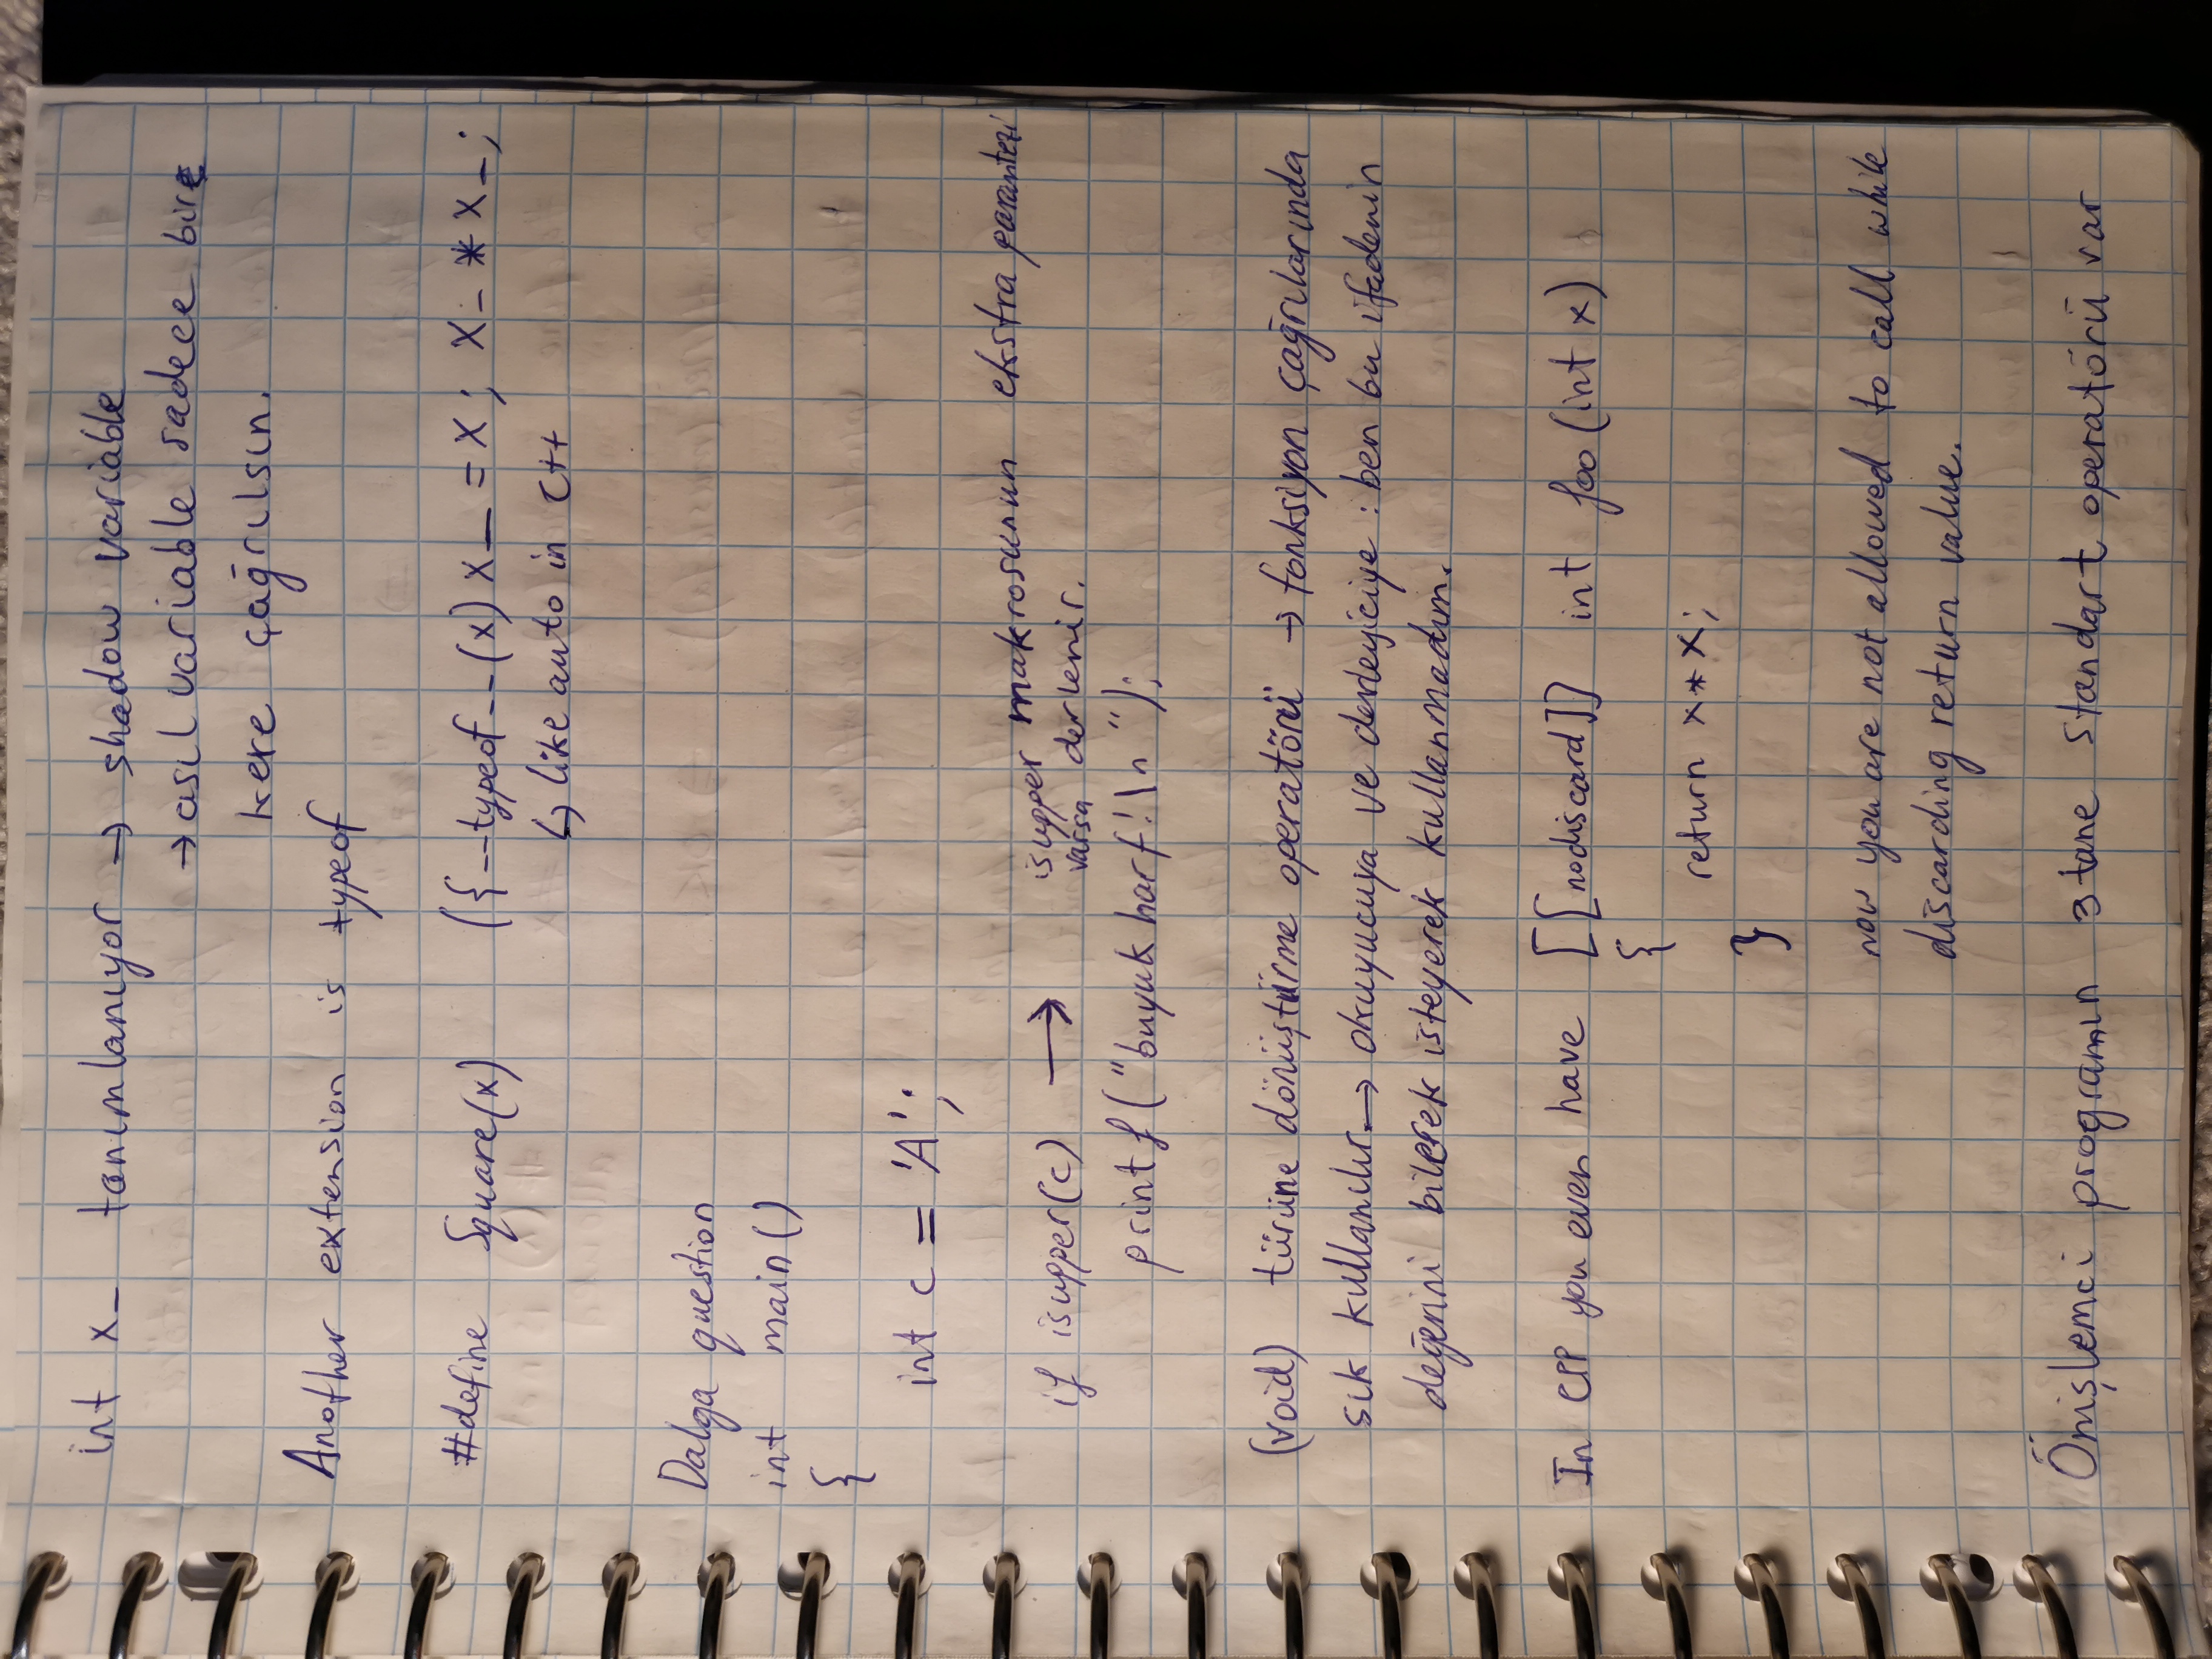 int x_ tanımlanıyor → shadow variable
→ asıl variable sadece bir
kere çağrılsın.
Another extension is typeof
#define Square(x) ({__typeof__(x) x_ = x; x_ * x_;
↳ like auto in C++
Dalga question
int main()
{
int c = 'A';
if isupper(c) → isupper makrosunun ekstra parantezi
varsa derlenir.
printf("buyuk harf!\n");
(void) türüne dönüştürme operatörü → fonksiyon çağrılarında
sık kullanılır → okuyucuya ve derleyiciye : ben bu ifadenin
değerini bilerek isteyerek kullanmadım.
In CPP you even have [[nodiscard]] int foo(int x)
{
return x*x;
}
now you are not allowed to call while
discarding return value.
Önişlemci programın 3 tane standart operatörü var